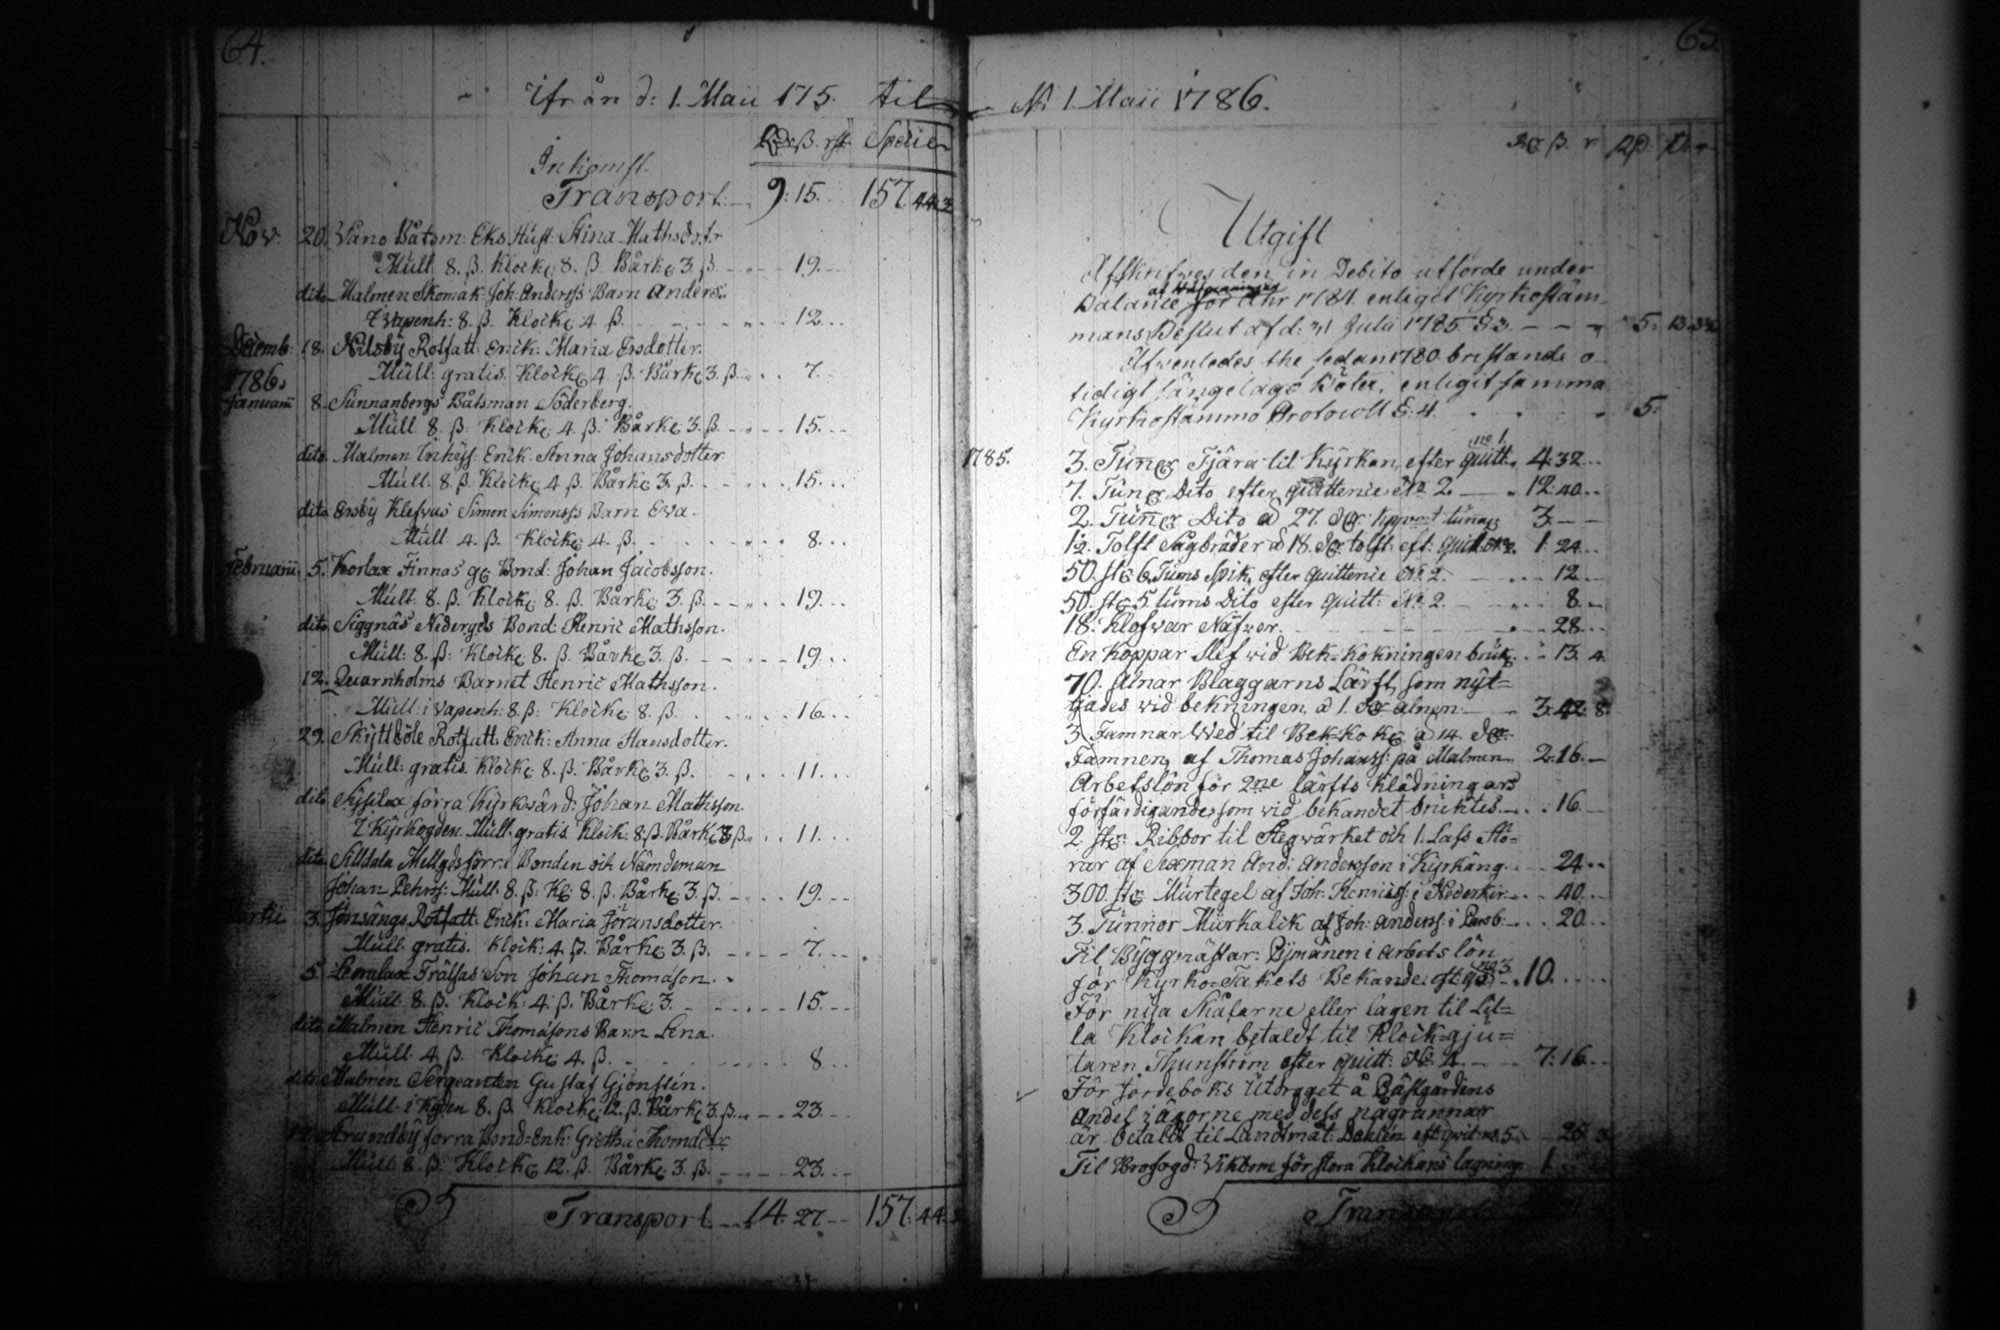 64.
Ifrån d: 1. Maii 175. til
Rd ß. rst. Specier
Inkomst.
Transport 9: 15. 157 44:3
Nov: 20. Våno Båtsm: Eks Hust: Stina Mathsdotr
Mull 8. ß. Klock: 8. ß. Bårk: 3 ß. 19.
dito Malmen Skomak: Joh: Anderss Barn Anders:
I vapenh: 8. ß. Klock: 4 ß. 12.
Decemb: 18. Nilsby Rotfatt: Enck: Maria Ersdotter.
Mull: gratis. Klock: 4. ß. Bårk: 3 ß. 7.
1786.
Januarii 8. Sunnanbergs Båtsman Söderberg.
Mull 8. ß. Klock: 4. ß. Bårk: 3 ß. 15.
dito Malmen Inhys: Enck: Anna Johansdotter
Mull. 8 ß. Klock: 4. ß. Bårk: 3 ß. 15.
dito Ersby Klefvas Simon Simonsss Barn Eva.
Mull 4. ß. Klock: 4. ß. 8.
Februarii 5. Korlax Finnas g: Bond: Johan Jacobsson.
Mull 8. ß. Klock: 8. ß. Bårk: 3. ß. 19.
dito Siggnäs Nedergds Bond: Henric Mathsson.
Mull: 8. ß: Klock: 8. ß. Bårk: 3. ß. 19.
12. Quarnholms Barnet Henric Mathsson.
Mull: i Vapenh: 8. ß: Klock: 8. ß. 16.
29. Skyttböle Rotfatt: Enck: Anna Hansdotter.
Mull: gratis. Klock: 8. ß. Bårk: 3. ß. 11.
dito Sysilax förra Kyrkvärd: Johan Mathsson.
I Kyrkogden. Mull: gratis. Klock: 8. ß. Bårk: 3 ß. 11.
dito Silldala Mellgds förr: Bonden och Nämdeman
Johan Pehrss: Mull: 8. ß: Kl: 8. ß. Bårk: 3. ß. 19.
Martii 3. Jönsängs Rotfatt: Enck: Maria Jöransdotter.
Mull: gratis. Klock: 4. ß. Bårk: 3. ß. 7.
5. Lemlax Frälsas Son Johan Thomason.
Mull 8. ß. Klock: 4. ß. Bårk: 3. 15.
dito Malmen Henric Thomasons Barn Lena.
Mull 4 ß. Klock: 4. ß. 8
dito Malmen Sergeanten Gustaf
Mull: i Kgden 8. ß. Klock: 12. ß. Bårk: 3. ß. 23.
Strandby förra Bond: Enk: Gretha Thomdotr
Mull 8. ß. Klock: 12. ß. Bårk: 3. ß. 23.
Transport 14: 27 157: 44:
65.
d: 1. Maii 1786.
Rd ß. r
Utgift
Afskrifves den in Debito utförde under
Balance för Åhr 1784. enligit Kyrkostäm-
mans Beslut af d: 31 Julii 1785. §3. 5: 13.
Äfvenledes the sedan 1780. bristande o-
tidigt sängelags Böter, enligit samma
Kyrkostämmo Protocoll §: 4. 5:
1785. 3. Tunnor Tjära til Kyrkan, efter quitt: no 1. 4. 32
7. Tunor Dito efter quittence No 2. 12. 40.
2. Tunnor Dito à 27. tunna 3.
1½. Tolft Sågbräder à 18. tolft. eft: quit: No 2. 1. 24.
50. st: 6. Tums Spik, efter quittence No. 2. 12.
50. st: 5. tums Dito efter quitt: No. 2. 8.
18. Klofvar Näfver. 28.
En Koppar Slef vid Bek-kokningen bruk: 13. 4.
70. Alnar Blaggarns Lärft, som nyt-
tjades vid bekningen, à 1. alnen 3. 42. 8.
3. Famnar Wed til Bek-kok: à 14.
Famnen, af Thomas Johanss: på Malmen 2. 16.
Arbetslön för 2ne lärfts Klädningars
förfärdigande, som vid bekandet bruktes 16.
2 st: Ribbor til Stegvärket och 1. Lass Stö-
rar af And: Andersson i Kyrkäng. 24.
300. st: Murtegel af Joh: Henricss: i 40.
3. Tunnor Murkalck af Joh: Anderss: i 20.
Til Byggmästar: Bijmanen i arbets lön
för Kyrko-Takets Bekande eft: no 3. 10.
För nya Skålarne eller lagen til Lil-
la Klockan betaldt til Klock-gju-
taren Thunström efter quitt: No 4. 7: 16.
För Jordeboks Utdraget å Pästgårdens
andel i ägorne med dess någrannar
är betaldt til Landtmät: Dahlén eft: qwit: no. 5.
Til Brofogd: Vikbom för stora Klockans lagning 1
Transport